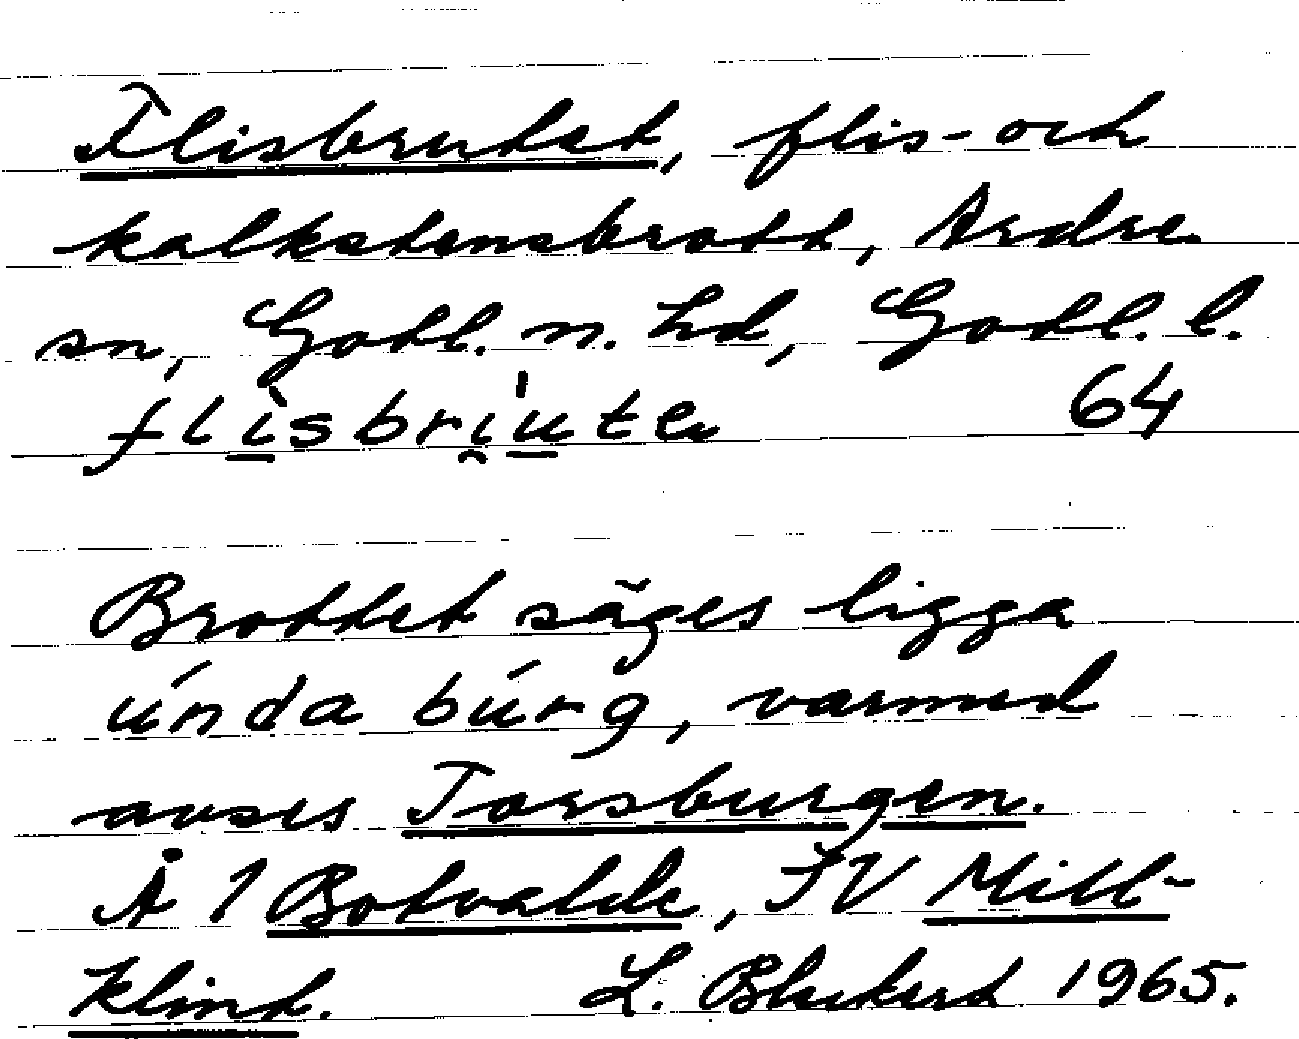 Flisbrutet, flis- och
kalkstensbrott, Ardre
sn, Gotl. n. hd, Gotl. l.
flisbriute 64
Brottet säges ligga
únda búrg, varmed
avses Torsburgen.
Å 1 Botvalde, SV Mill-
klint. L. Blekert 1965.